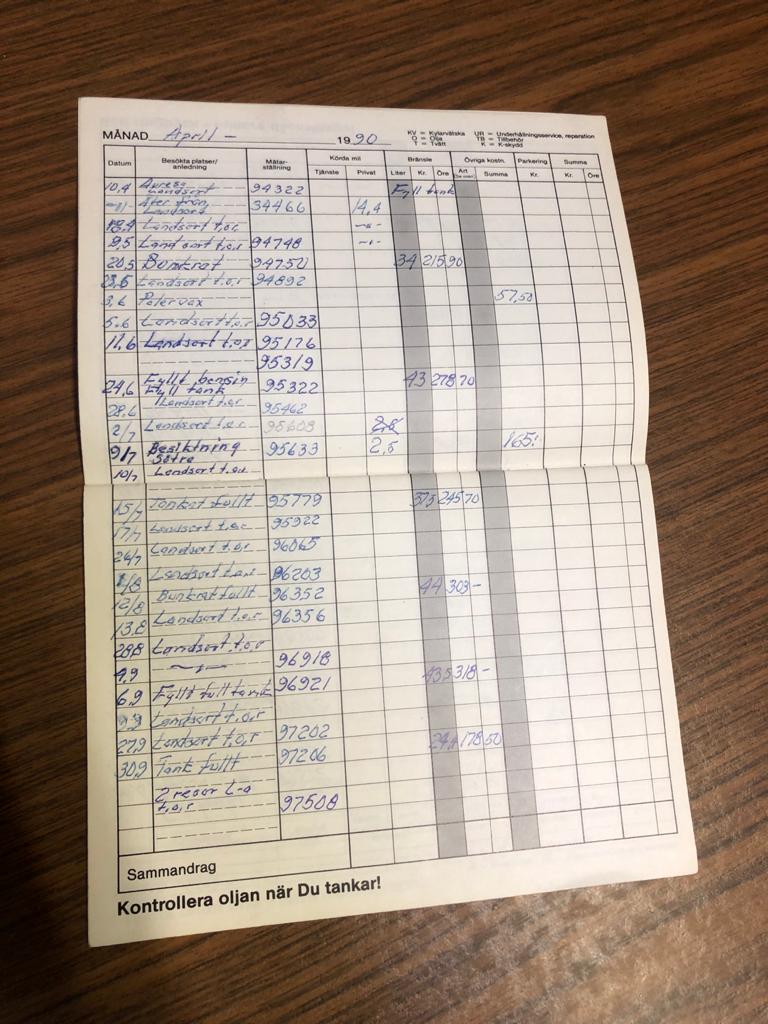 MÅNAD April - 1990
KV = Kylarvätska UR = Underhållningsservice, reparation
O = Olja TB = Tillbehör
T = Tvätt K = K-skydd
Datum Besökta platser/anledning Mätarställning Körda mil Bränsle Övriga kostn. Parkering Summa
Tjänste Privat Liter Kr. Öre Art Summa Kr. Kr. Öre
10,4 Landsort 94322 Full tank
-11- Åter från Landsort 34466 14,4
Landsort t,o,r -"-
9,5 Landsort t,o,r 94748 -"-
20,5 Bunkrat 94750 34 215 90
Landsort t,o,r 94892
3,6 57,50
5.6 Landsort t,o,r 95033
11,6 Landsort t,o,r 95176
95319
24,6 Fyllt bensin Full tank 95322 43 278 70
28.6 Landsort t,o,r 95462
2/7 Landsort t,o,r 95608
9/7 Besiktning Sätra 95633 2,5 165:
10/7 Landsort t,o,r
15/7 Tankat fullt 95779 37,5 245 70
17/7 Landsort t,o,r 95922
Landsort t,o,r 96065
1/8 Landsort t,o,r 96203
12/8 Bunkrat fullt 96352 44 303-
13.8 Landsort t,o,r 96356
28,8 Landsort t,o,r
4,9 -"- 96918
6,9 Fyllt full tank 96921 43,5 318-
9,9 Landsort t,o,r
27,9 Landsort t,o,r 97202
30,9 Tank fullt 97206 24,1 178 50
2 resor L-o
t,o,r 97508
Sammandrag
Kontrollera oljan när Du tankar!